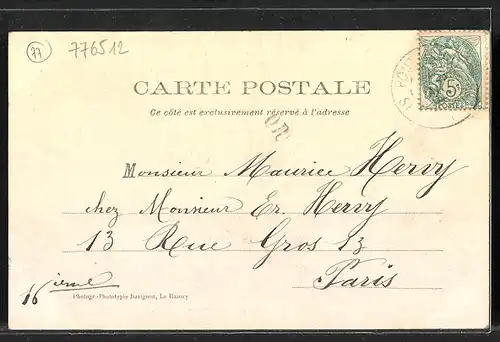 77
776512
CARTE POSTALE
Ce côté est exclusivement réservé à l'adresse
OR
5c
POSTES
Monsieur Maurice Hervy
chez Monsieur Er. Hervy
13 Rue Gros 13
Paris
16 ième
Photogr.-Phototypie Davignon, Le Raincy